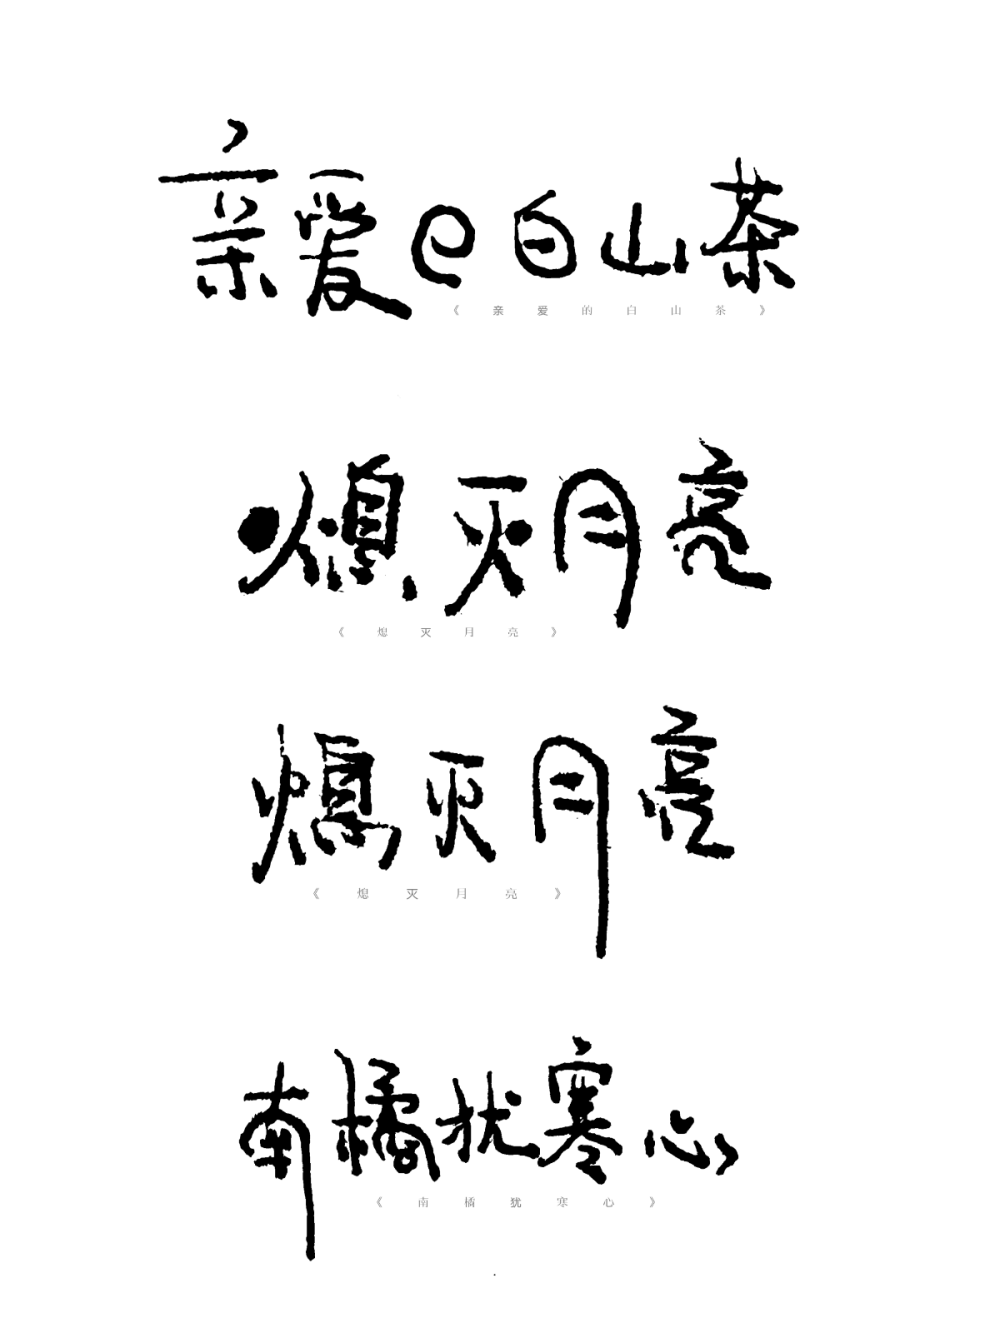 亲爱的白山茶
《亲爱的白山茶》
熄灭月亮
《熄灭月亮》
熄灭月亮
《熄灭月亮》
南橘犹寒心
《南橘犹寒心》